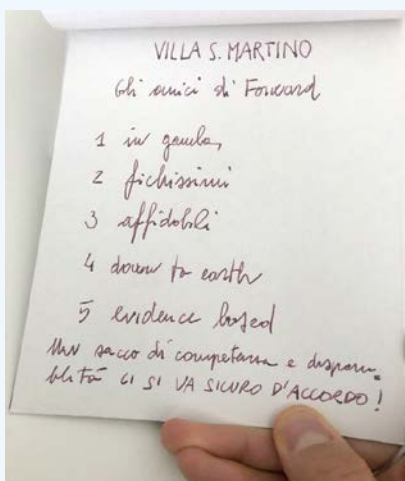 VILLA S. MARTINO
Gli amici di Forward
1 in gamba,
2 fichissimi
3 affidabili
4 down to earth
5 evidence based
Un sacco di competenza e disponi_
bilità CI SI VA SICURO D'ACCORDO!